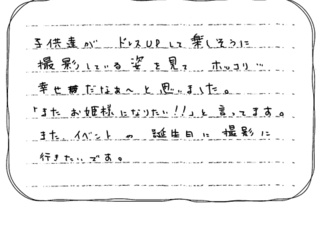 子供達が ドレスUPして楽しそうに
撮影している姿を見て ホッコリ…
幸せだなぁ〜と思いました。
「また お姫様になりたい!!」と言ってます。
また、イベントの 誕生日に撮影に
行きたいです。